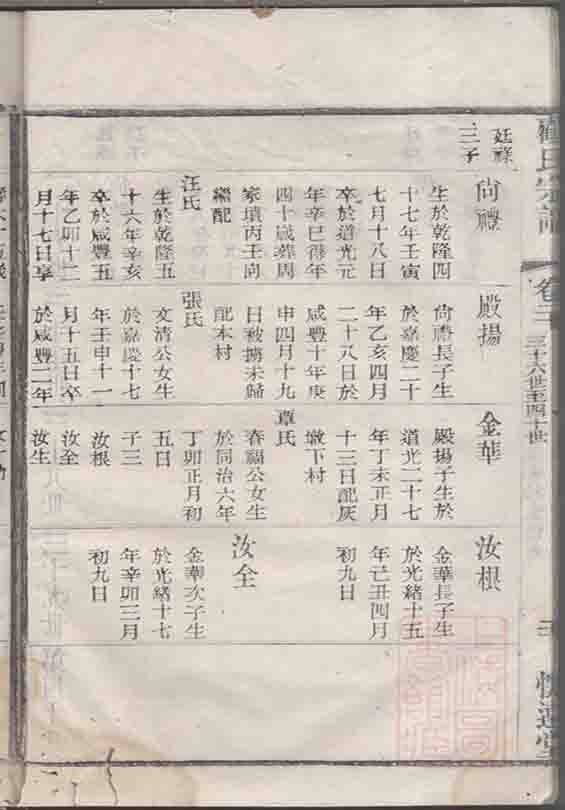 氏宗譜
卷三
三十六世至四十世
廷祿
三子
尙禮
生於乾隆四
十七年壬寅
七月十八日
卒於道光元
年辛巳得年
四十歲葬周
家墳丙壬向
繼配
汪氏
生於乾隆五
十六年辛亥
卒於咸豐五
年乙卯十二
月十七日享
殿揚
尙禮長子生
於嘉慶二十
年乙亥四月
二十八日於
咸豐十年庚
申四月十九
日被擄未歸
配本村
張氏
文清公女生
於嘉慶十七
年壬申十一
月十五日卒
於咸豐二年
金華
殿揚子生於
道光二十七
年丁未正月
十三日配灰
墩下村
覃氏
春福公女生
於同治六年
丁卯正月初
五日
子三
汝根
汝全
汝生
汝根
金華長子生
於光緒十五
年己丑四月
初九日
汝全
金華次子生
於光緒十七
年辛卯三月
初九日